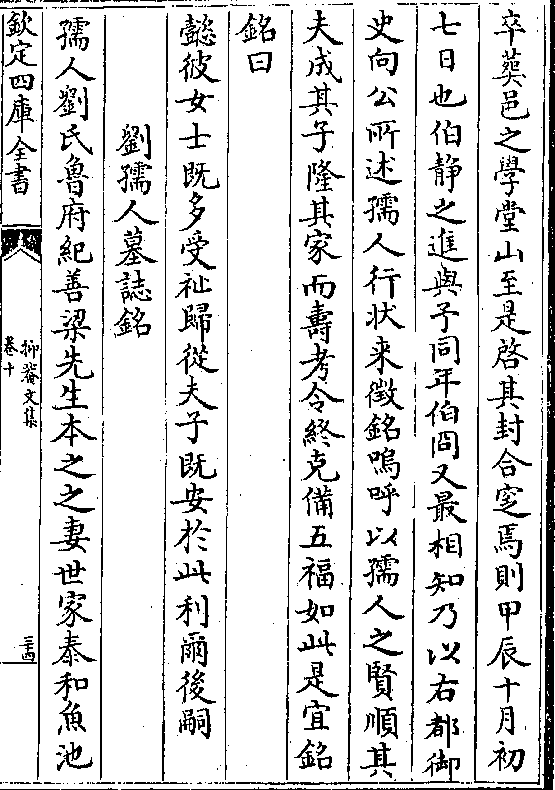 卒葬邑之學堂山至是啓其封合窆焉則甲辰十月初
七日也伯静之進與予同年伯冏又最相知乃以右都御
史向公所述孺人行狀来徵銘嗚呼以孺人之賢順其
夫成其子隆其家而夀考令終克備五福如此是宜銘
銘曰
懿彼女士既多受祉歸從夫子既安於此利爾後嗣
劉孺人墓誌銘
孺人劉氏魯府紀善梁先生本之之妻世家泰和魚池
欽定四庫全書
抑菴文集
卷十
三十四